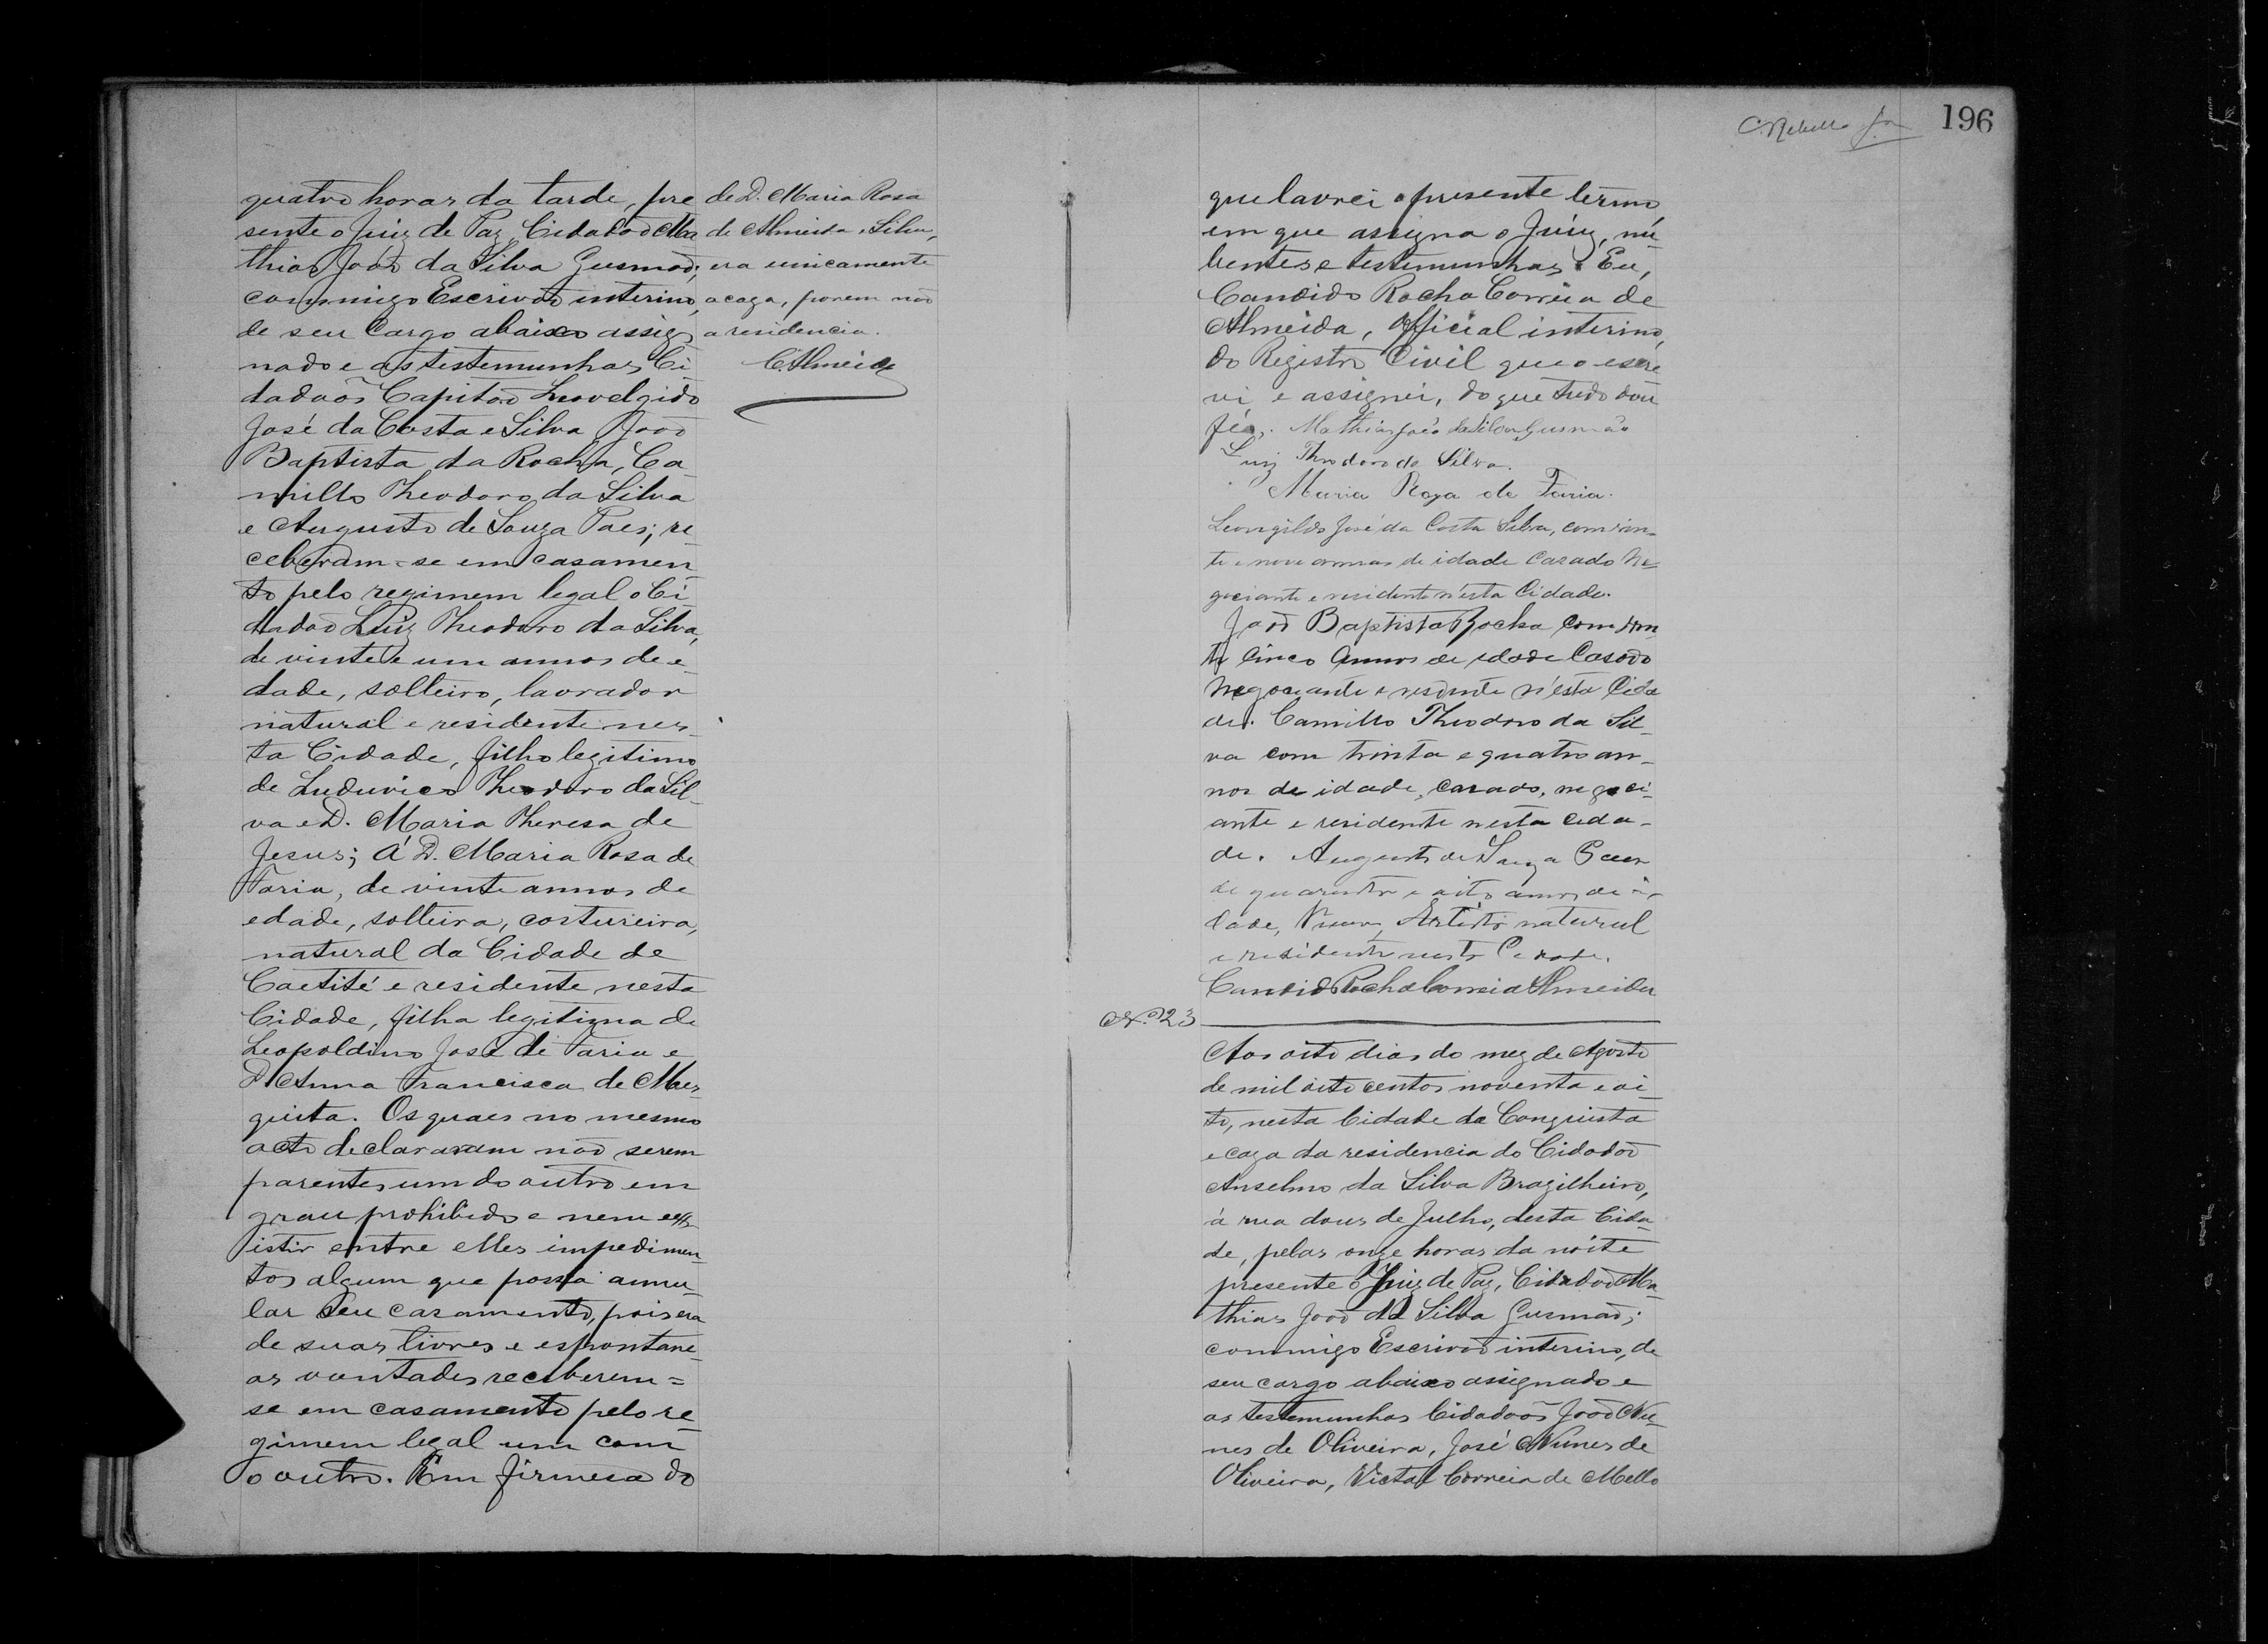 quatro horas da tarde, pre
sente o Juiz de Paz, Cidadaõ Ma
thias Joaõ da Silva Gusmaõ;
commigo Escrivaõ interino,
de seu Cargo abaixo assig
nado e as testemunhas Ci
dadaõs Capitaõ Leovelgido
José da Costa e Silva, Joaõ
Baptista da Rocha, Ca
millo Theodoro da Silva
e Augusto de Souza Paes; re
ceberam-se em casamen
to pelo regimem legal o Ci
dadaõ Luiz Theodoro da Silva,
de vinte e um annos de e
dade, solteiro, lavrador
natural e residente nes
ta Cidade, filho legitimo
de Luduvico Theodoro da Sil
va e D. Maria Theresa de
Jesus; á D. Maria Rosa de
Faria, de vinte annos de
edade, solteira, costureira,
natural da Cidade de
Caetité e residente nesta
Cidade, filha legitima de
Leopoldino José de Faria e
D. Anna Francisca de Mes
quita. Os quaes no mesmo
acto declararam naõ serem
parentes um do outro em
grau prohibido e nem ex
istir entre elles impedimen
tos algum que possa annu
lar seu casamento, pois era
de suas livres e espontane
as vontades receberem=
se em casamento pelo re
gimem legal um com
o outro. Em firmesa do
de D. Maria Rosa
de Almeida e Silva,
era unicamente
a caza, porem naõ
a residencia.
C. Almeida
196
que lavrei o presente termo,
em que assigna o Juiz, nu
bentes e testemunhas. Eu,
Candido Rocha Corrêia de
Almeida, Official interino,
do Registro Civil que o escre
vi e assignei, do que tudo dou
fé. Mathias João da Silva Gusmão
Luiz Theodoro da Silva.
Maria Roza de Faria.
Leovigildo José da Costa Silva, com vin
te e nove annos de idade casado Ne=
gociante e residente n'esta Cidade.
Joaõ Baptista Rocha com
te Cinco Annos de edade Casado
Negociante e residente n'esta Cida
de. Camillo Theodoro da Sil
va com trinta e quatro an-
nos de idade, casado, negoci-
ante e residente nesta cida-
de. Augusto de Souza Paes
de quarenta e oito annos de i-
dade, Viuvo, Artista natural
e residente nesta Cidade.
Candido Rocha Correia Almeida
N.º 23
Aos oito dias do mez de Agosto
de mil oito centos noventa e oi
to, nesta Cidade da Conquista
e caza da residencia do Cidadaõ
Anselmo da Silva Brazilheiro,
á rua dous de Julho, desta Cida
de, pelas onze horas da noite
presente o Juiz de Paz, Cidadaõ Ma
thias Joaõ da Silva Gusmaõ;
commigo Escrivaõ interino, de
seu cargo abaixo assignado e
as testemunhas Cidadaõs Joaõ Nu
nes de Oliveira, José Nunes de
Oliveira, Victal Correia de Mello